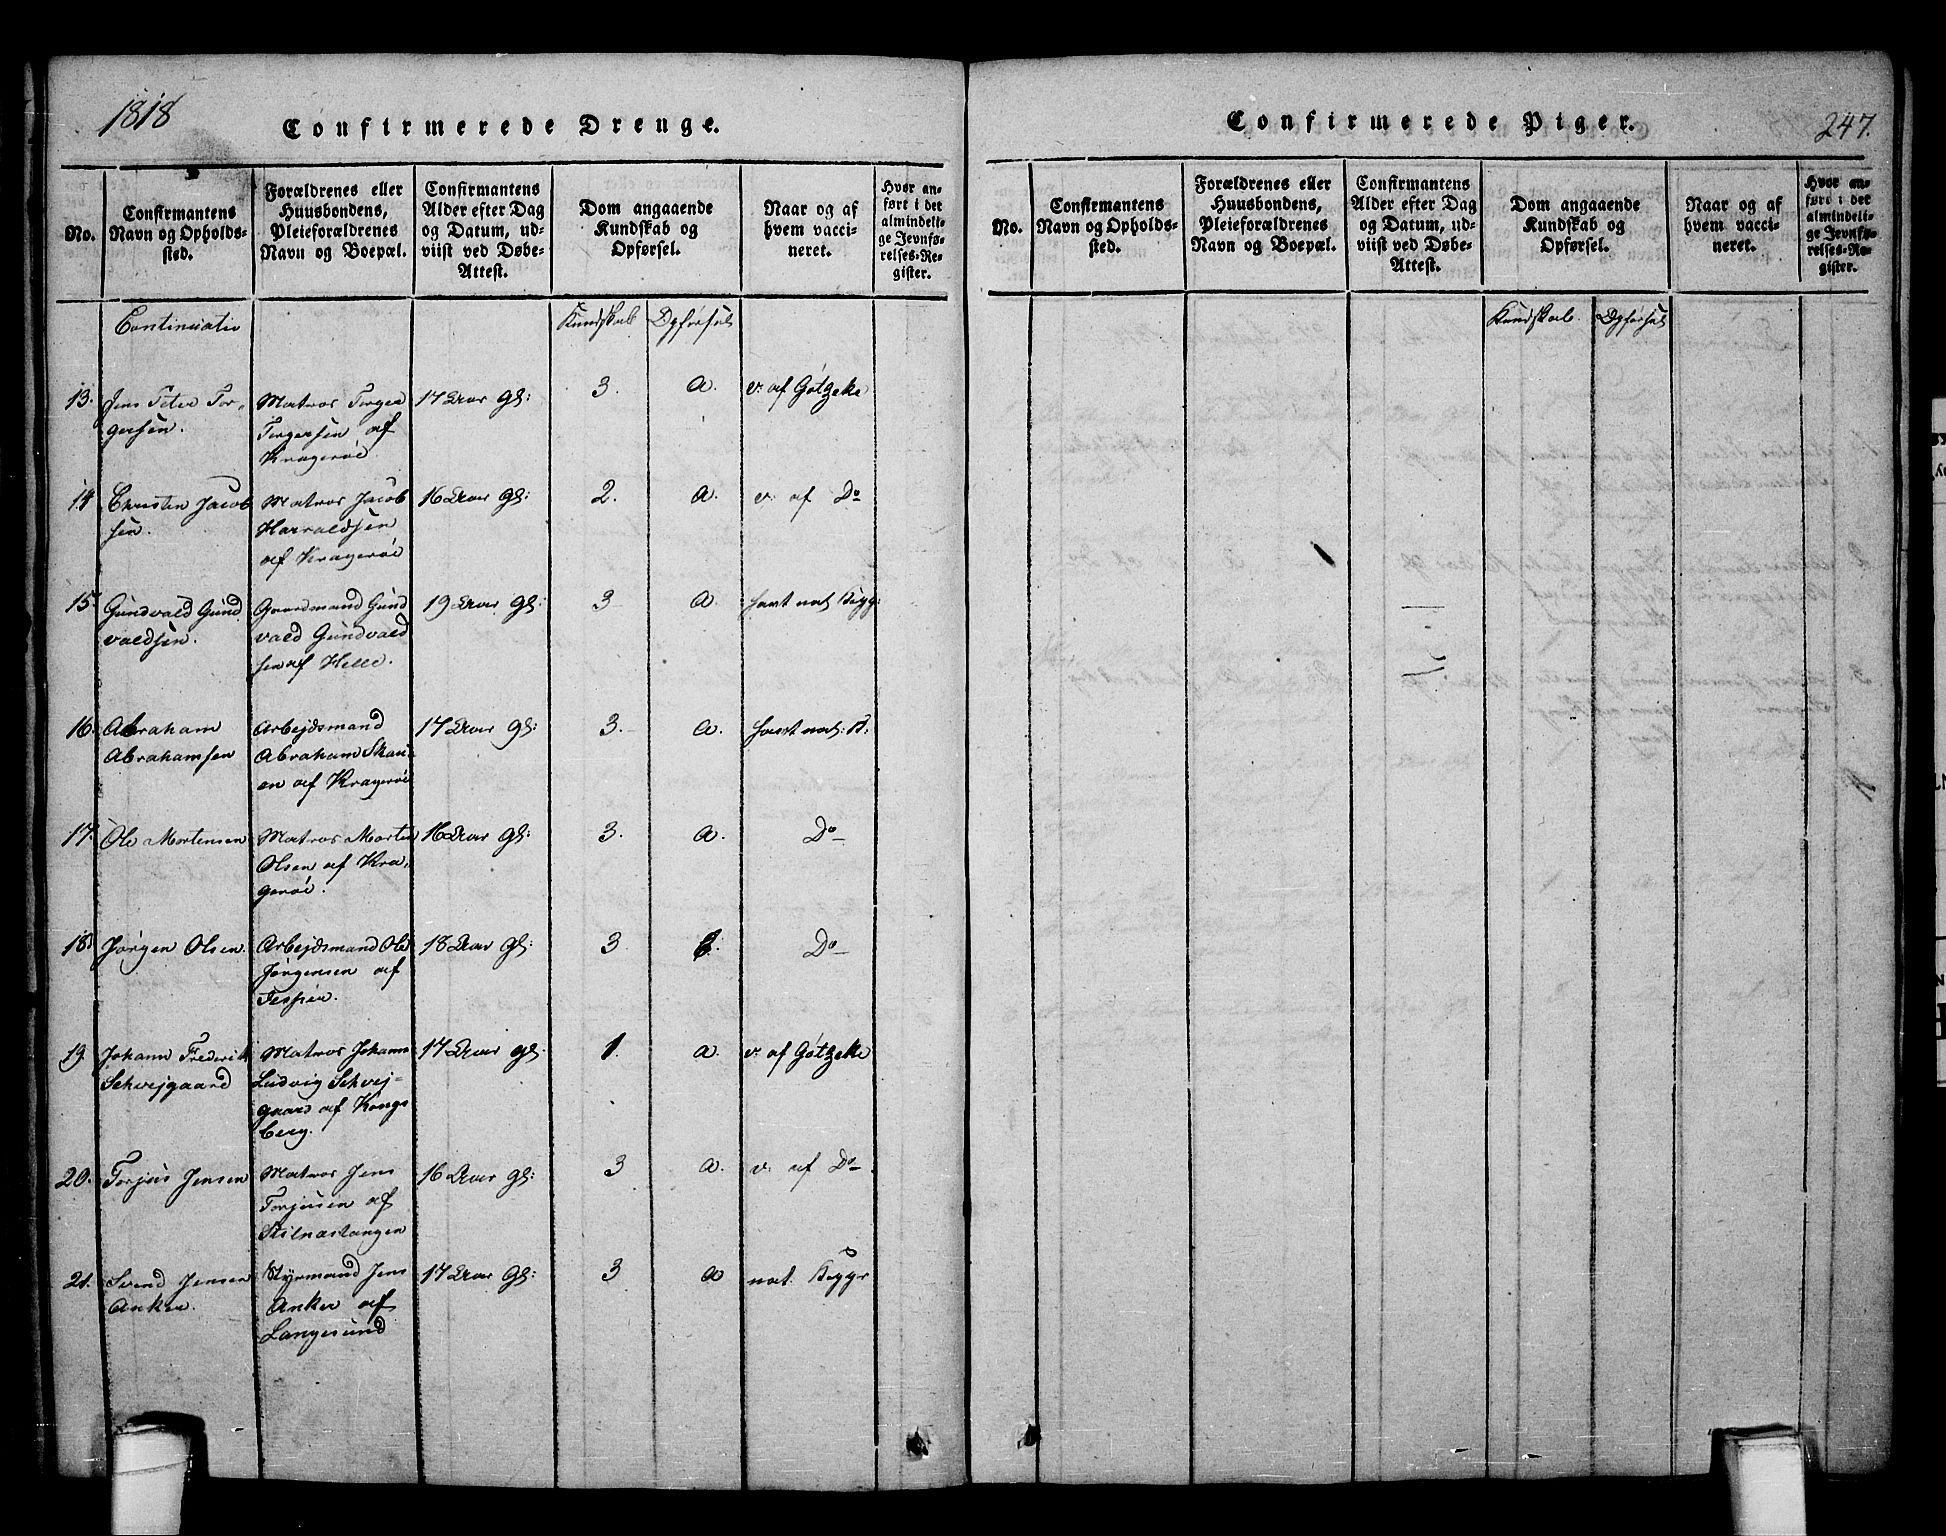 1818
Confirmerede Drenge.
No.
Confirmantens
Navn og Opholds-
sted.
Forældrenes eller
Huusbondens,
Pleieforældrenes
Navn og Boepæl.
Confirmantens
Alder efter Dag
og Datum, ud-
viist ved Døbe-
Attest.
Dom angaaende
Kundskab og
Opførsel.
Naar og af
hvem vacci-
neret.
Hvor an-
ført i det
almindeli-
ge Jevnfø-
relses-Re-
gister.
Continuatio
Kundskab Opførsel
13. Jens Peter Tor-
gersen.
Matros Torger
Torgersen af
Kragerøe
17 Aar gl: 3. a. v. af Gøtzeke
14 Christen Jacob
sen.
Matros Jacob
Harraldsen
af Kragerøe
16 Aar gl: 2. a. v. af Do
15. Gundvald Gund
valdsen.
Gaardmand Gund
vald Gundvald
sen af Helle.
19 Aar gl: 3 a. havt nat. Kopp:
16. Abraham
Abrahamsen
Arbejdsmand
Abraham Skau-
en af Kragerøe
17 Aar gl: 3. a. havt nat: K:
17. Ole Mortensen
Matros Morten
Olsen af Kra-
gerøe.
16 Aar gl: 3. a. Do
18. Jørgen Olsen.
Arbejdsmand Ole
Jørgensen af
18 Aar gl: 3 Do
19 Johann Frederik
Schvejgaard
Matros Johann
Ludvig Schvej-
gaard af Kongs
berg.
17 Aar gl. 1. a. v. af Gøtzeke
20. Torjus Jensen
Matros Jens
Torjusen af
Stilnæstangen
16 Aar gl: 3 a. v. af Do
21. Svend Jensen
Anker.
Styrmand Jens
Anker af
Langesund
17 Aar gl: 3 a nat. Kopper
Confirmerede Piger.
247.
No.
Confirmantens
Navn og Opholds-
sted.
Forældrenes eller
Huusbondens,
Pleieforældrenes
Navn og Boepæl.
Confirmantens
Alder efter Dag
og Datum, ud-
viist ved Døbe-
Attest.
Dom angaaende
Kundskab og
Opførsel.
Naar og af
hvem vacci-
neret.
Hvor an-
ført i det
almindeli-
ge Jevnfø-
relses-Re-
gister.
Kundskab. Opførsel